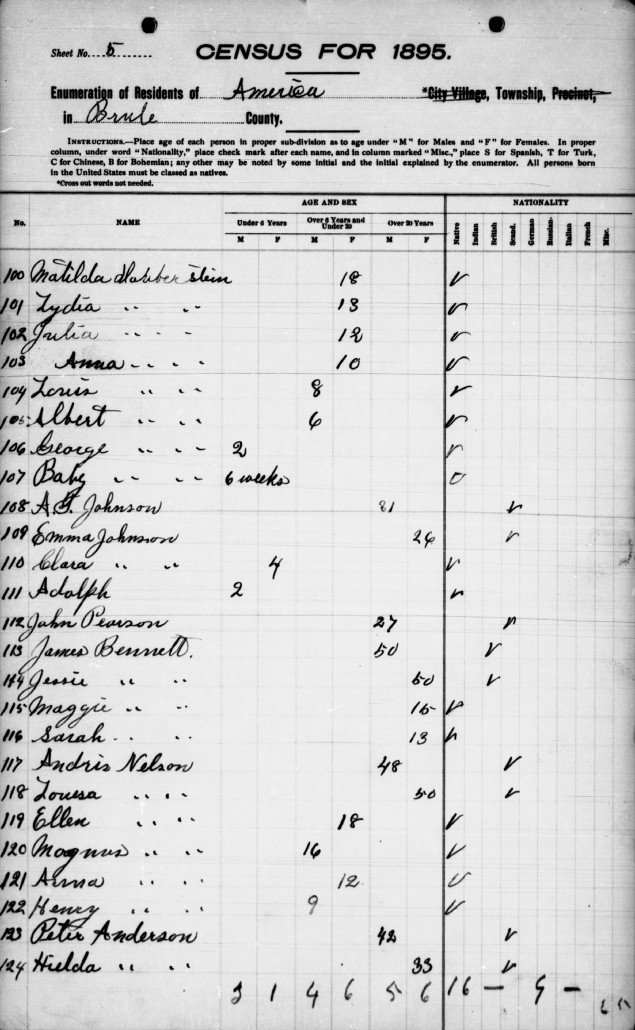 Sheet No. 5
CENSUS FOR 1895.
Enumeration of Residents of America *City Village, Township, Precinct,
in Brule County.
INSTRUCTIONS.—Place age of each person in proper sub-division as to age under "M" for Males and "F" for Females. In proper
column, under word "Nationality," place check mark after each name, and in column marked "Misc.," place S for Spanish, T for Turk,
C for Chinese, B for Bohemian; any other may be noted by some initial and the initial explained by the enumerator. All persons born
in the United States must be classed as natives.
*Cross out words not needed.
AGE AND SEX NATIONALITY
No. NAME Under 6 Years Over 6 Years and Under 20 Over 20 Years Native Indian British Scand. German Russian Italian French Misc.
M F M F M F
100 Matilda Habberstein 18 ✓
101 Lydia " " 13 ✓
102 Julia " " 12 ✓
103 Anna " " 10 ✓
104 Louis " " 8 ✓
105 Albert " " 6 ✓
106 George " " 2 ✓
107 Baby " " 6 weeks
108 A. Johnson ✓
109 Emma Johnson 26 ✓
110 Clara " " 4 ✓
111 Adolph 2 ✓
112 John Pearson 27 ✓
113 James Bennett. 50 ✓
114 Jessie " " 50 ✓
115 Maggie " " 15 ✓
116 Sarah " " 13 ✓
117 Andris Nelson 48 ✓
118 Louesa " " 50 ✓
119 Ellen " " 18 ✓
120 Magnus " " 16 ✓
121 Anna " " 12 ✓
122 Henry " " 9 ✓
123 Peter Anderson 42 ✓
124 Hielda " " 33 ✓
3 1 4 6 5 6 16 — 9 —